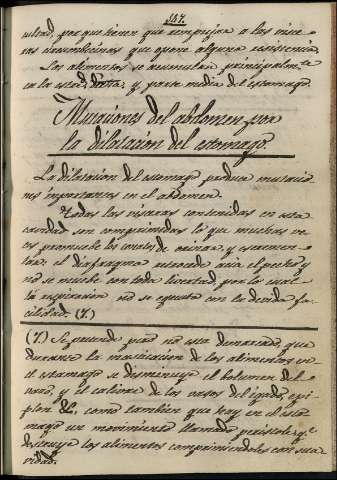 147.
ultad, porque tienen que rempujar a las vice-
ras circumbecinas que opone alguna resistencia.
Los alimentos se acumulan principalm.te
en la estr.d dra, y parte media del estomago.
Mutaciones del abdomen por
la dilatacion del estomago.
La dilatacion del estomago produce mutacio-
nes importantes en el abdomen.
Todas las visaras contenidas en esta
cavidad son comprimidas lo que muchas ve-
ces promuebe los conatos de orinar, y escremen-
tar: el diafragma arrocado acia el pecho y
no se muebe con toda libertad, por lo cual
la espiracion no se egecuta con la devida fa-
cilidad. (1.)
(1.) Se puede pues no esta demaciado, que
durante la masticacion de los alimentos en
el estomago se disminuye el bolumen del
vaso, y el calibre de los vasos del igado, epi-
plon &c. como tambien que hay en el esto-
mago un movimiento llamado peristole q.e
destruye los alimentos comprimiendolos con sua-
vidad.